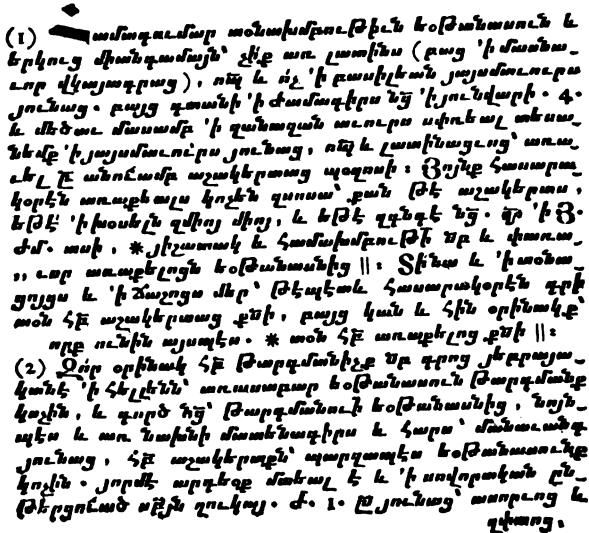 (1) ամագումար տօնախմբութիւն եօթանասուն և
երկուց միանգամայն՝ չիք առ լատինս (բաց 'ի մասնա_
ւոր վկայագրաց), որպ և ոչ 'ի բասիլեան յայսմաւուրս
յունաց. բայց գտանի 'ի ժամագիրս նց 'ի յունվարի. 4.
և մեծաւ մասամբ 'ի զանազան աւուրս սփռեալ տեսա_
նեմք 'ի յայսմաւուրս յունաց, որպ և լատինացւոց՝ առա_
ւել ընդ անուամբ աշակերտաց պօղոսի: Յոյնք հասարա_
կօրէն առաքեալս կոչեն զսոսա՝ քան թէ աշակերտս,
եթէ 'ի խօսելն զմիոյ միոյ, և եթէ զզնգէ նց. զի 'ի Յ.
ժմ. ասի, * յիշատակ և համախմբութի սբ և փառա_
,, ւոր առաքելոցն եօթանասնից ||: Տինա և 'ի տօնա_
ցոյցս և 'ի ճաշոցս մեր՝ թէպէտև հասարակօրէն գրի
տօն հբ աշակերտաց քնի, բայց կան և հին օրինակք՝
որք ունին այսպէս. * տօն հբ առաքելոց քնի ||:
(2) Զոր օրինակ հբ թարգմանիչք սբ գրոց յեբրայա_
կանէ 'ի հելլենն՝ առասաբար եօթանասուն թարգմանք
կոչին, և գործ նց՝ թարգմանուի եօթանասնից, նոյն_
պէս և առ նախնի մատենագիրս և հարս՝ մանաւանդ
յունաց, հբ աշակերտքն՝ պարզապէս եօթանասունք
կոչին. յորմէ արդեօք մտեալ է և 'ի սովորական ըն_
թերցուած աւեյն ղուկայ. ժ. 1. ըստ յունաց՝ ասորւոց և
դպտոց.